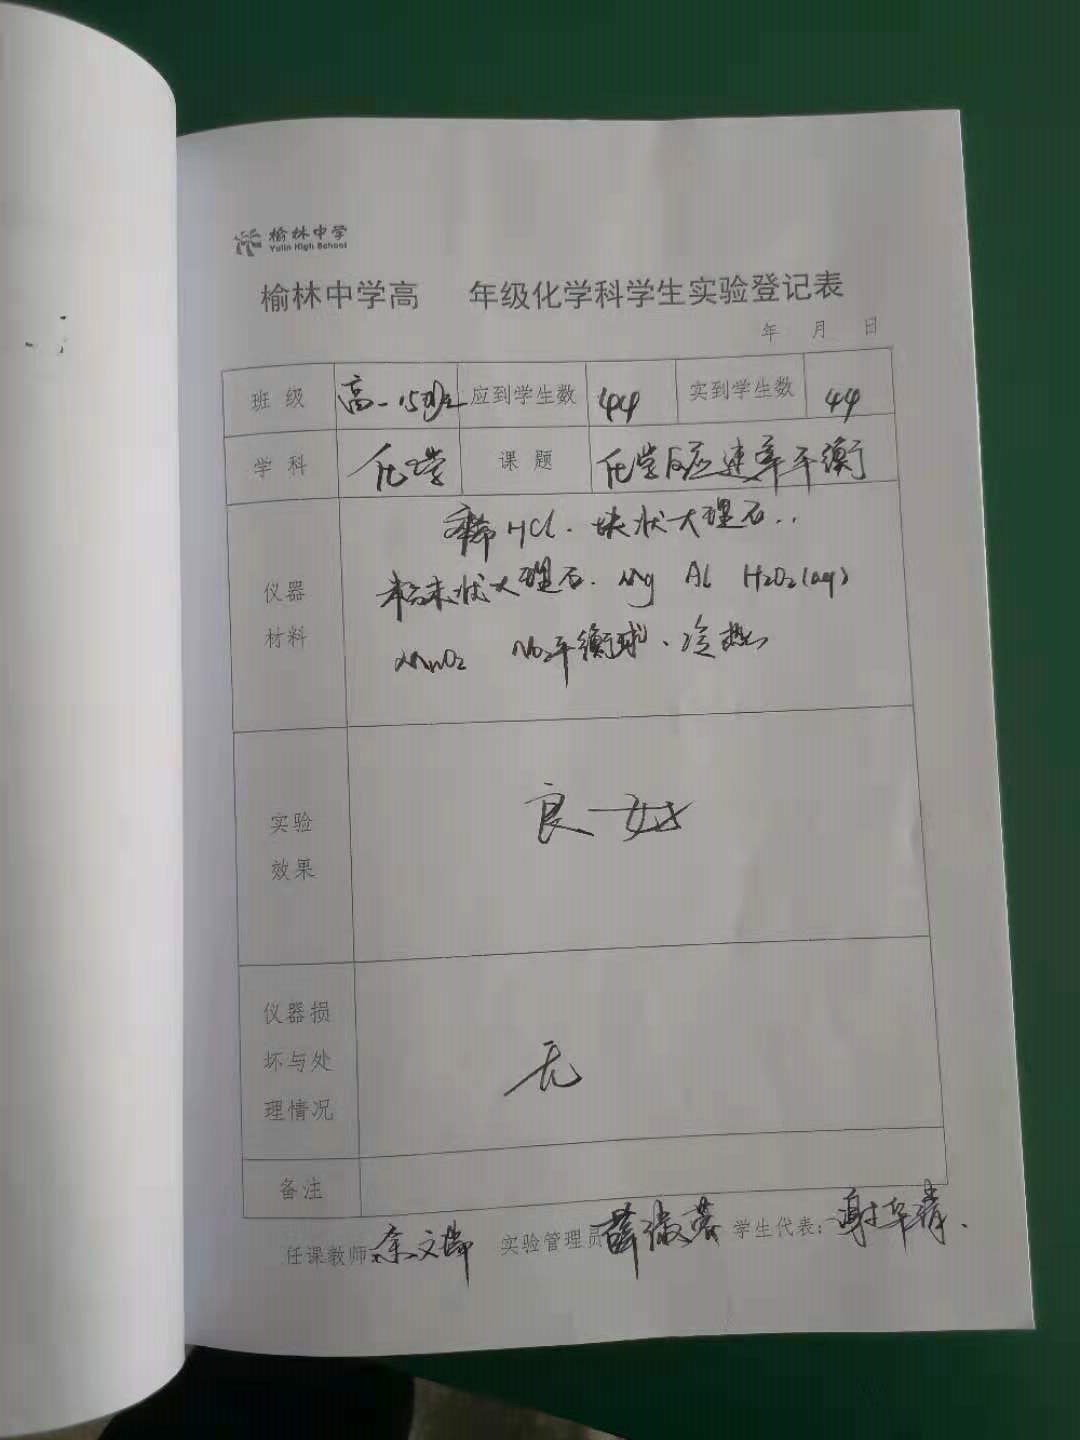 榆林中学
Yulin High School
榆林中学高 年级化学科学生实验登记表
年 月 日
班级 高一15班 应到学生数 44 实到学生数 44
学科 化学 课题 化学反应速率平衡
仪器材料
稀HCl. 块状大理石..
粉末状大理石. Mg Al H2O2(aq)
MnO2 NO2平衡球、冷热
实验效果 良好
仪器损坏与处理情况 无
备注
任课教师 余文 实验管理员 薛淑蓉 学生代表: 谢华清.